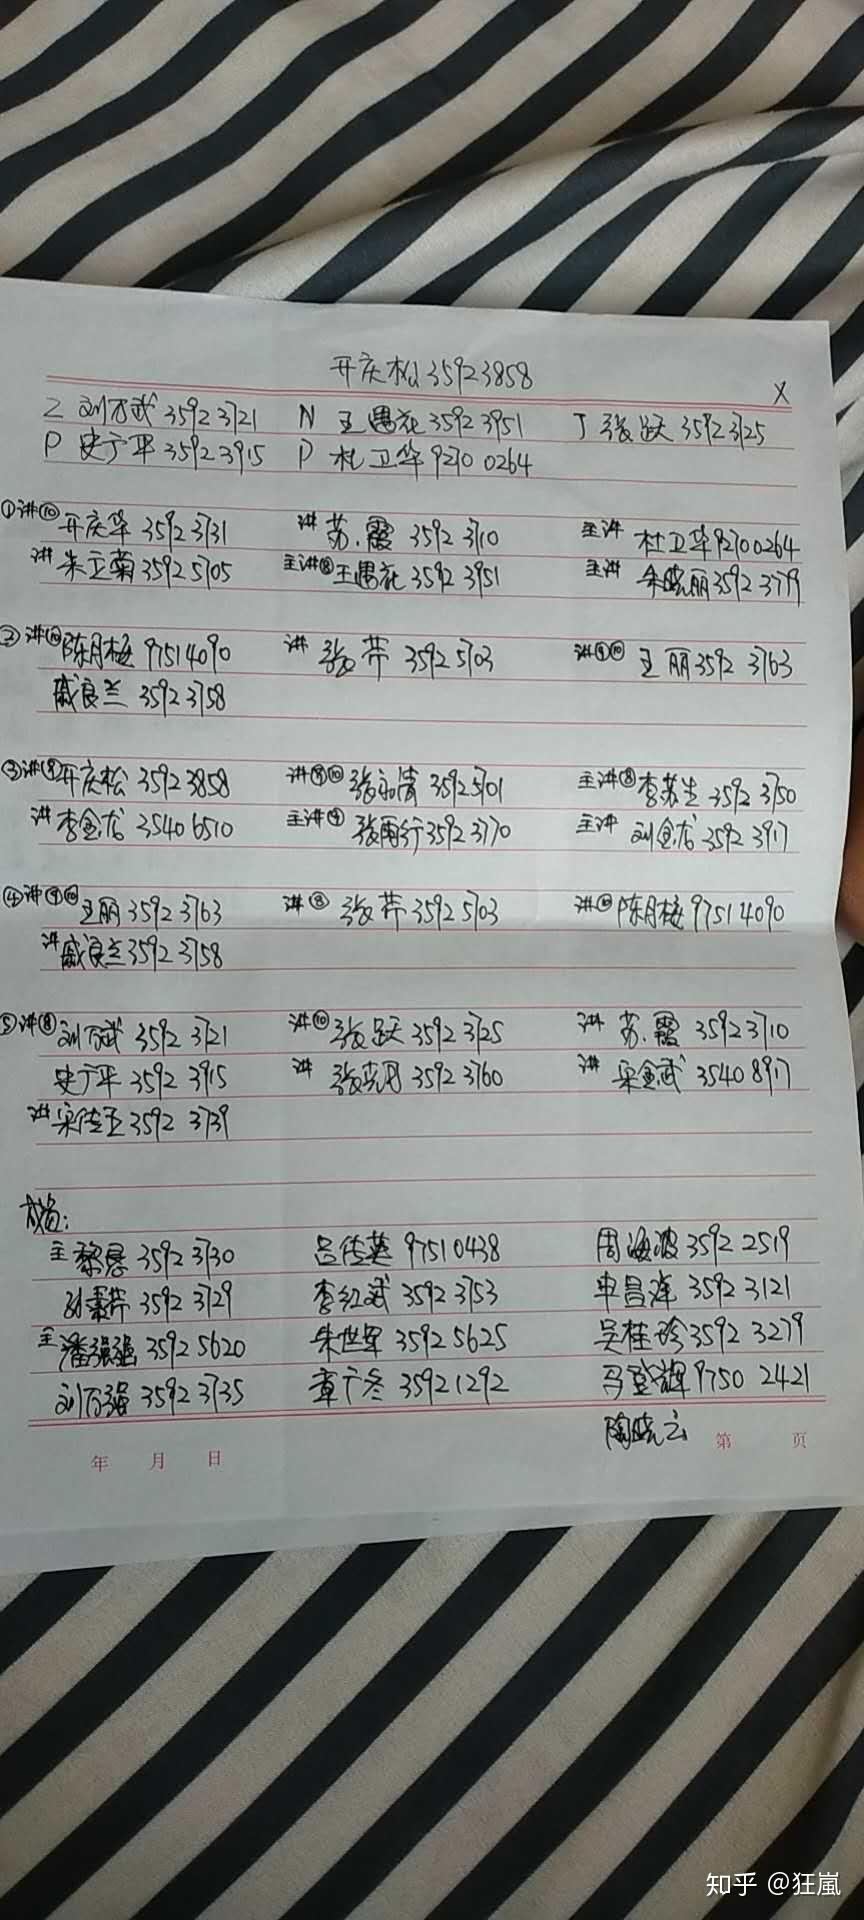 开庆松 3592 3858
X
Z 刘万武 3592 3721 N 王遇花 3592 3951 J 张跃 3592 3725
P 史广平 3592 3915 P 杜卫华 9270 0264
①讲⑩开庆华 3592 3731 讲 苏霞 3592 3710 主讲 杜卫华 9270 0264
讲 朱立菊 3592 5705 主讲⑧王遇花 3592 3951 主讲 朱晓丽 3592 3779
②讲⑩陈月梅 9751 4090 讲 张苹 3592 5703 讲⑨⑩ 王丽 3592 3763
戚良兰 3592 3758
③讲⑨开庆松 3592 3858 讲⑨⑩张永清 3592 5701 主讲⑧李苏生 3592 3750
讲 李金龙 3540 6510 主讲⑨张雨行 3592 3770 主讲 刘金龙 3592 3917
④讲⑨⑩王丽 3592 3763 讲⑧ 张苹 3592 5703 讲⑩陈月梅 9751 4090
讲戚良兰 3592 3758
⑤讲⑧刘万武 3592 3721 讲⑩张跃 3592 3725 讲 苏霞 3592 3710
史广平 3592 3915 讲 3592 3760 讲 宋金武 3540 8917
讲宋传玉 3592 3739
主黎 3592 3730 吕传英 9751 0438 周海波 3592 2519
3592 3729 李红武 3592 3753 申昌 3592 3121
主潘强强 3592 5620 朱世军 3592 5625 吴桂珍 3592 3279
刘万强 3592 3735 章广冬 3592 1292 马登辉 9750 2421
陶晓云
年 月 日 第 页
知乎 @狂嵐